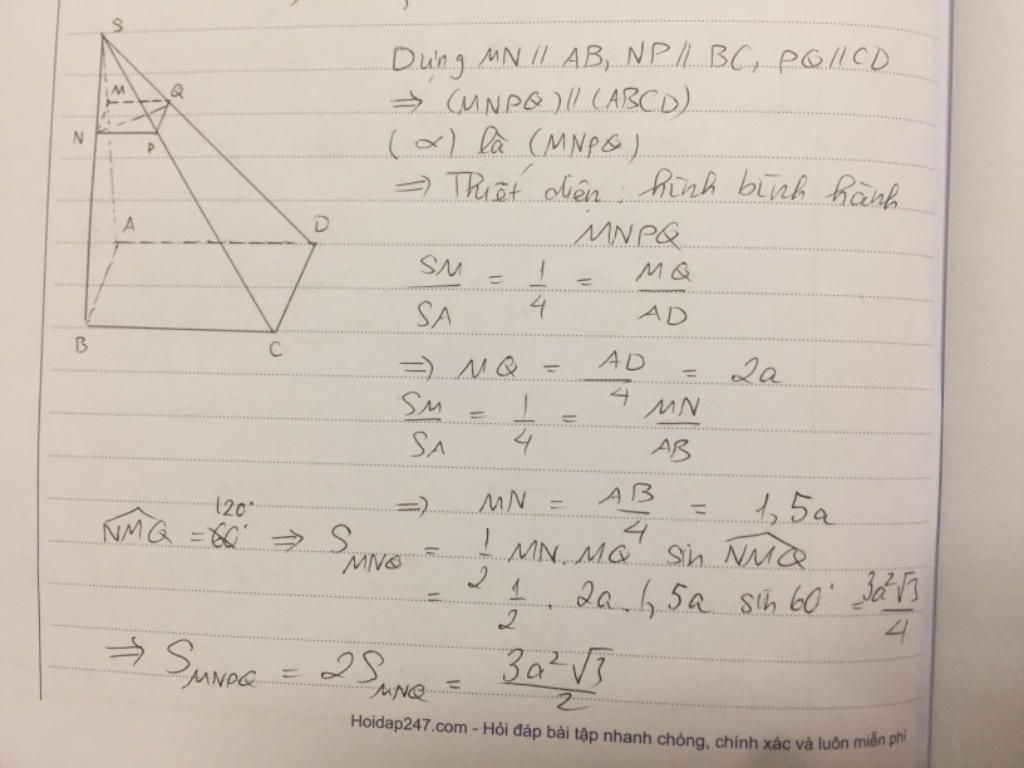 S
M
Q
N
P
A
D
B
C
Dựng MN // AB, NP // BC, PQ // CD
⇒ (MNPQ) // (ABCD)
(α) là (MNPQ)
⇒ Thiết diện: hình bình hành
MNPQ
SM/SA = 1/4 = MQ/AD
⇒ MQ = AD/4 = 2a
SM/SA = 1/4 = MN/AB
⇒ MN = AB/4 = 1,5a
120°
NMQ = 60° ⇒ S MNQ = 1/2 MN.MQ sin NMQ
= 1/2 . 2a.1,5a sin 60° = 3a²√3/4
⇒ S MNPQ = 2S MNQ = 3a²√3/2
Hoidap247.com - Hỏi đáp bài tập nhanh chóng, chính xác và luôn miễn phí